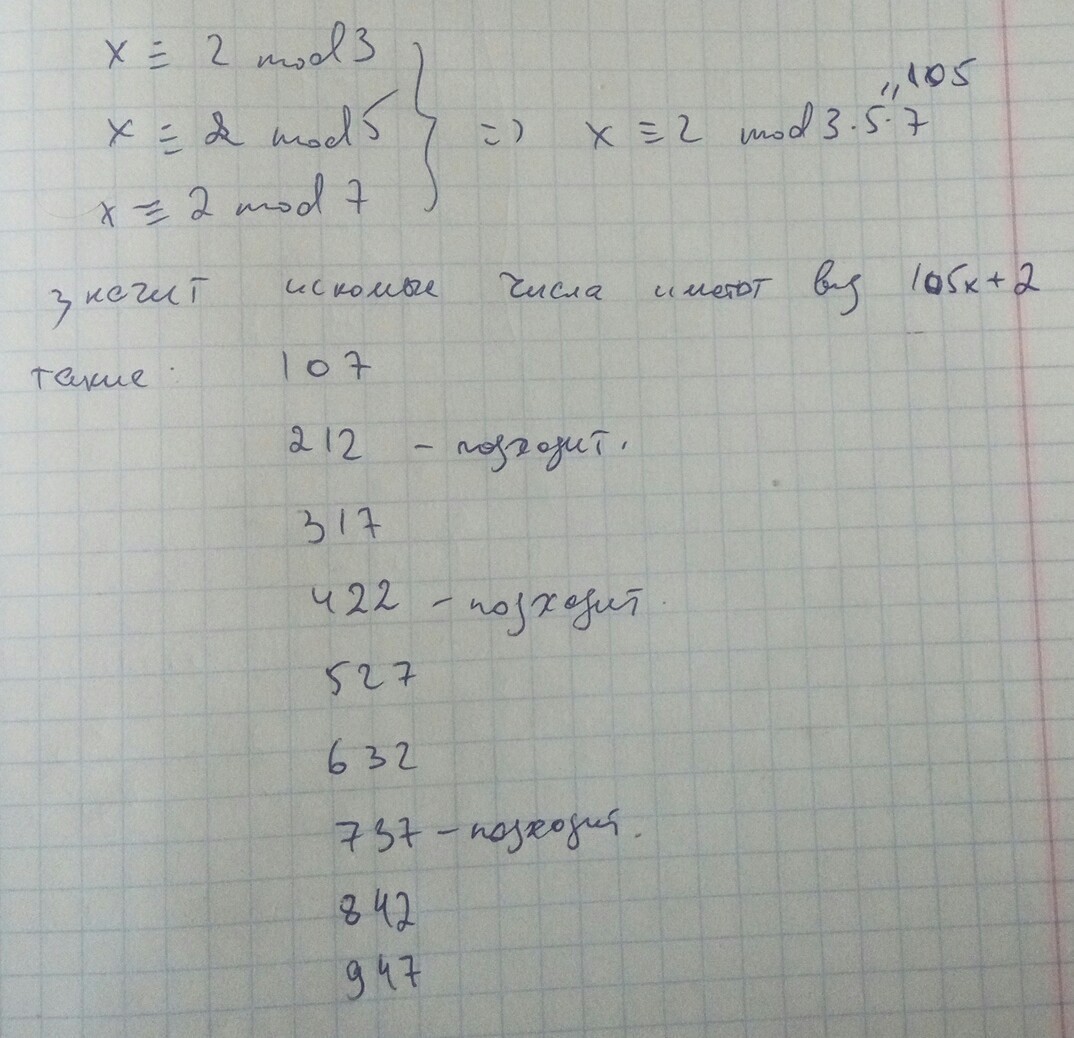 x ≡ 2 mod 3
x ≡ 2 mod 5 } => x ≡ 2 mod 3·5·7 = 105
x ≡ 2 mod 7
значит искомые числа имеют вид 105к+2
такие: 107
212 – подходит.
317
422 – подходит.
527
632
737 – подходит.
842
947